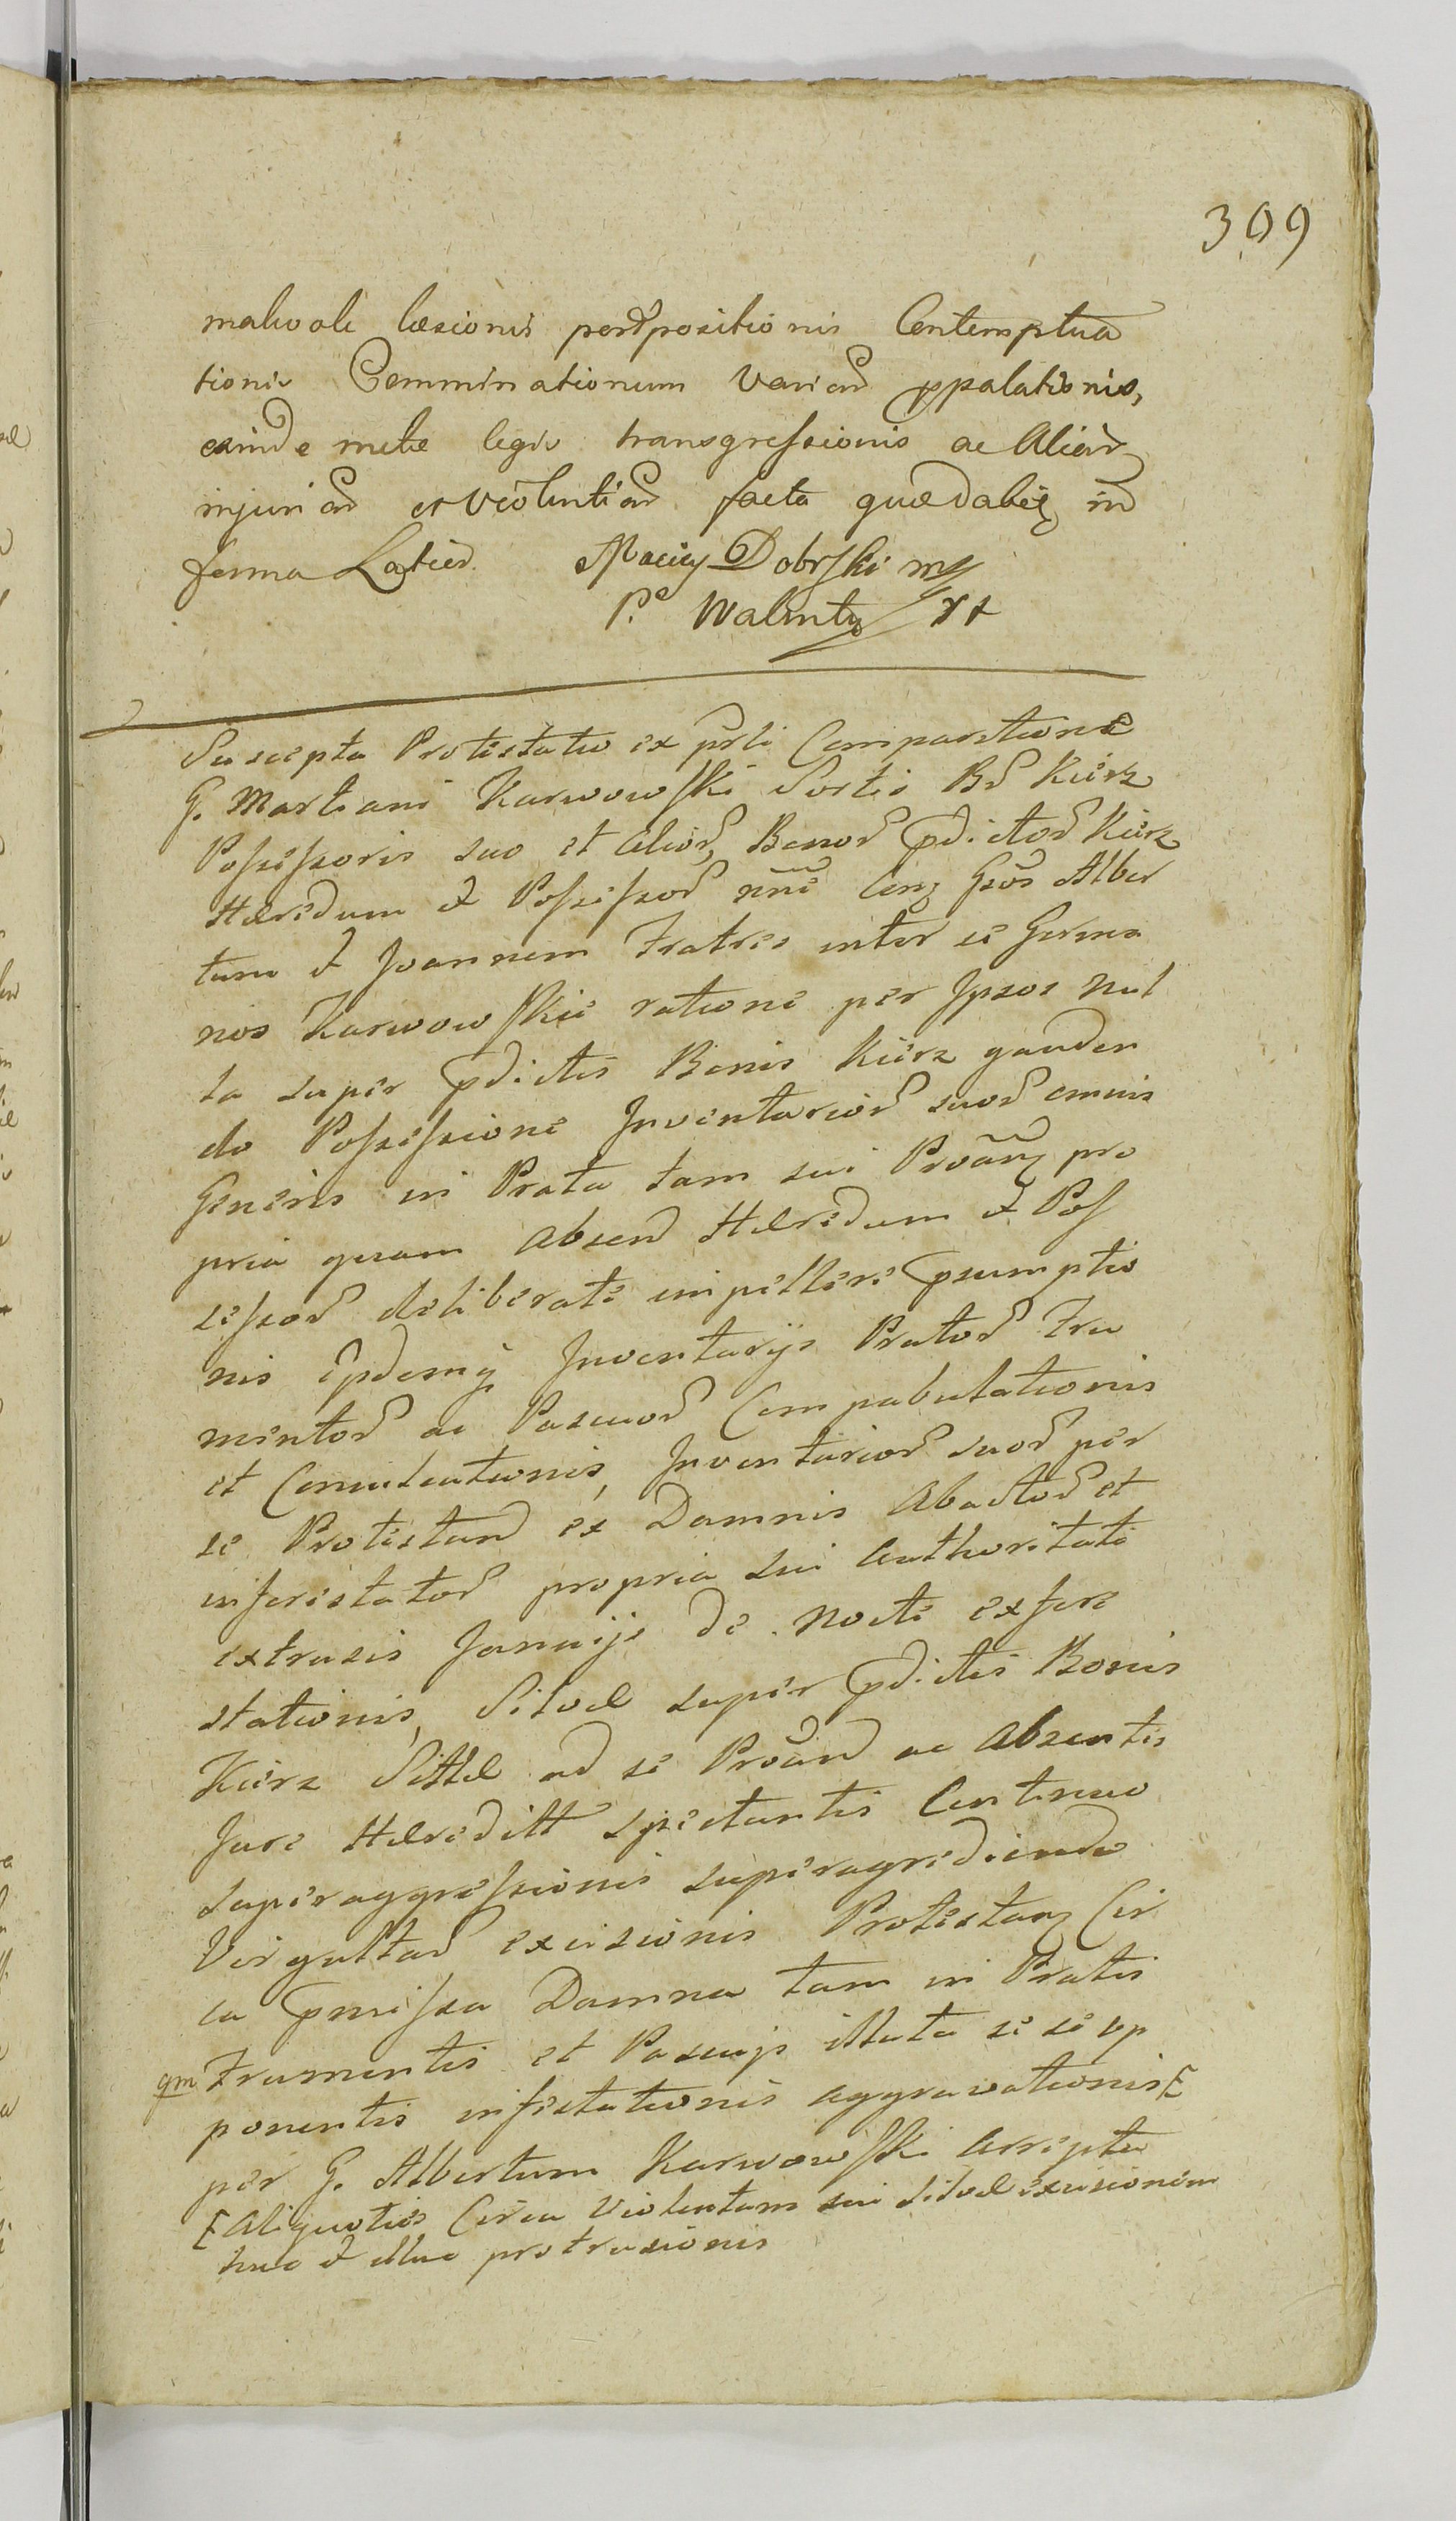 309
malevole læsionis postpositionis Contemptua
tionis Comminationum variar ppalationis,
exinde metæ legis transgressionis ac Aliar
injuriar et violentiar facta quædabitq in
forma Latiori Maciey Dobrski mp
Walenty
Suscepta Protestatio ex pnti Comparitione
G. Martiani Karwowski Sortis Br Kurz
Possessoris suo et alior Bonor pdictor Kurz
Hæredum et Possessor nne Cong Gsos Alber
tum et Joannem Fratres inter se Germa
nos Karwowskie ratione per Ipsos nul
la super pdictis Bonis Kurz gauden
do Possessione Inventarior suor omnis
Generis in Prata tam sui Protang pro
pria quam absen Hæredum et Pos
sessor deliberate impellere psumptio
nis Ipdemq Inventarijs Prator Fru
mentor ac Pascuor Compabulationis
et Conculcationis, Inventarior suor per
se Protestan ex Damnis Abactor et
inforistator propria sui authoritate
extrusis Januijs de nocte exfore
stationis, Silvæ super pdictis Bonis
Kurz Sittæ ad se Protan ac absentes
Jure Hæreditt spectantis Continuo
superaggressionis superagrediendo
Virgultar excisionis Protestanq Cir
ca pmissa Damna tam in Pratis
qm Frumentis et Pascuijs illata se se op
ponentis infestationis aggravationis [
per G. Albertum Karwowski Arrepta
[ Aliquoties Circa Violentam sui Silvæ excisionem
huc et illuc protrusionis